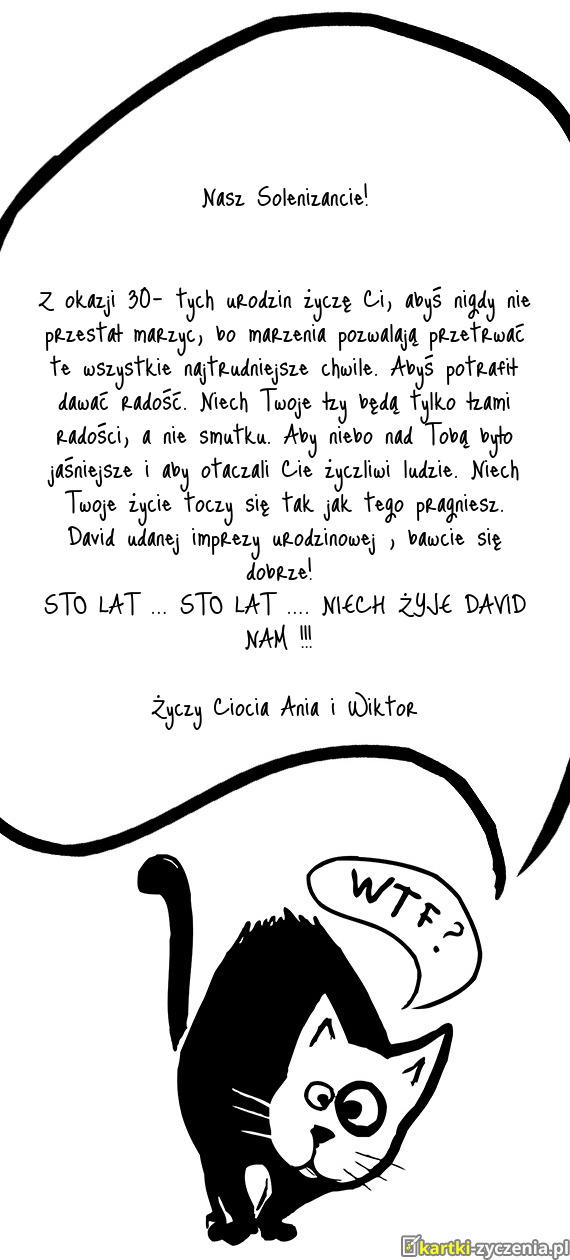 Nasz Solenizancie!
Z okazji 30- tych urodzin życzę Ci, abyś nigdy nie
przestał marzyc, bo marzenia pozwalają przetrwać
te wszystkie najtrudniejsze chwile. Abyś potrafił
dawać radość. Niech Twoje łzy będą tylko łzami
radości, a nie smutku. Aby niebo nad Tobą było
jaśniejsze i aby otaczali Cie życzliwi ludzie. Niech
Twoje życie toczy się tak jak tego pragniesz.
David udanej imprezy urodzinowej , bawcie się
dobrze!
STO LAT ... STO LAT .... NIECH ŻYJE DAVID
NAM !!!
Życzy Ciocia Ania i Wiktor
WTF?
kartki-zyczenia.pl